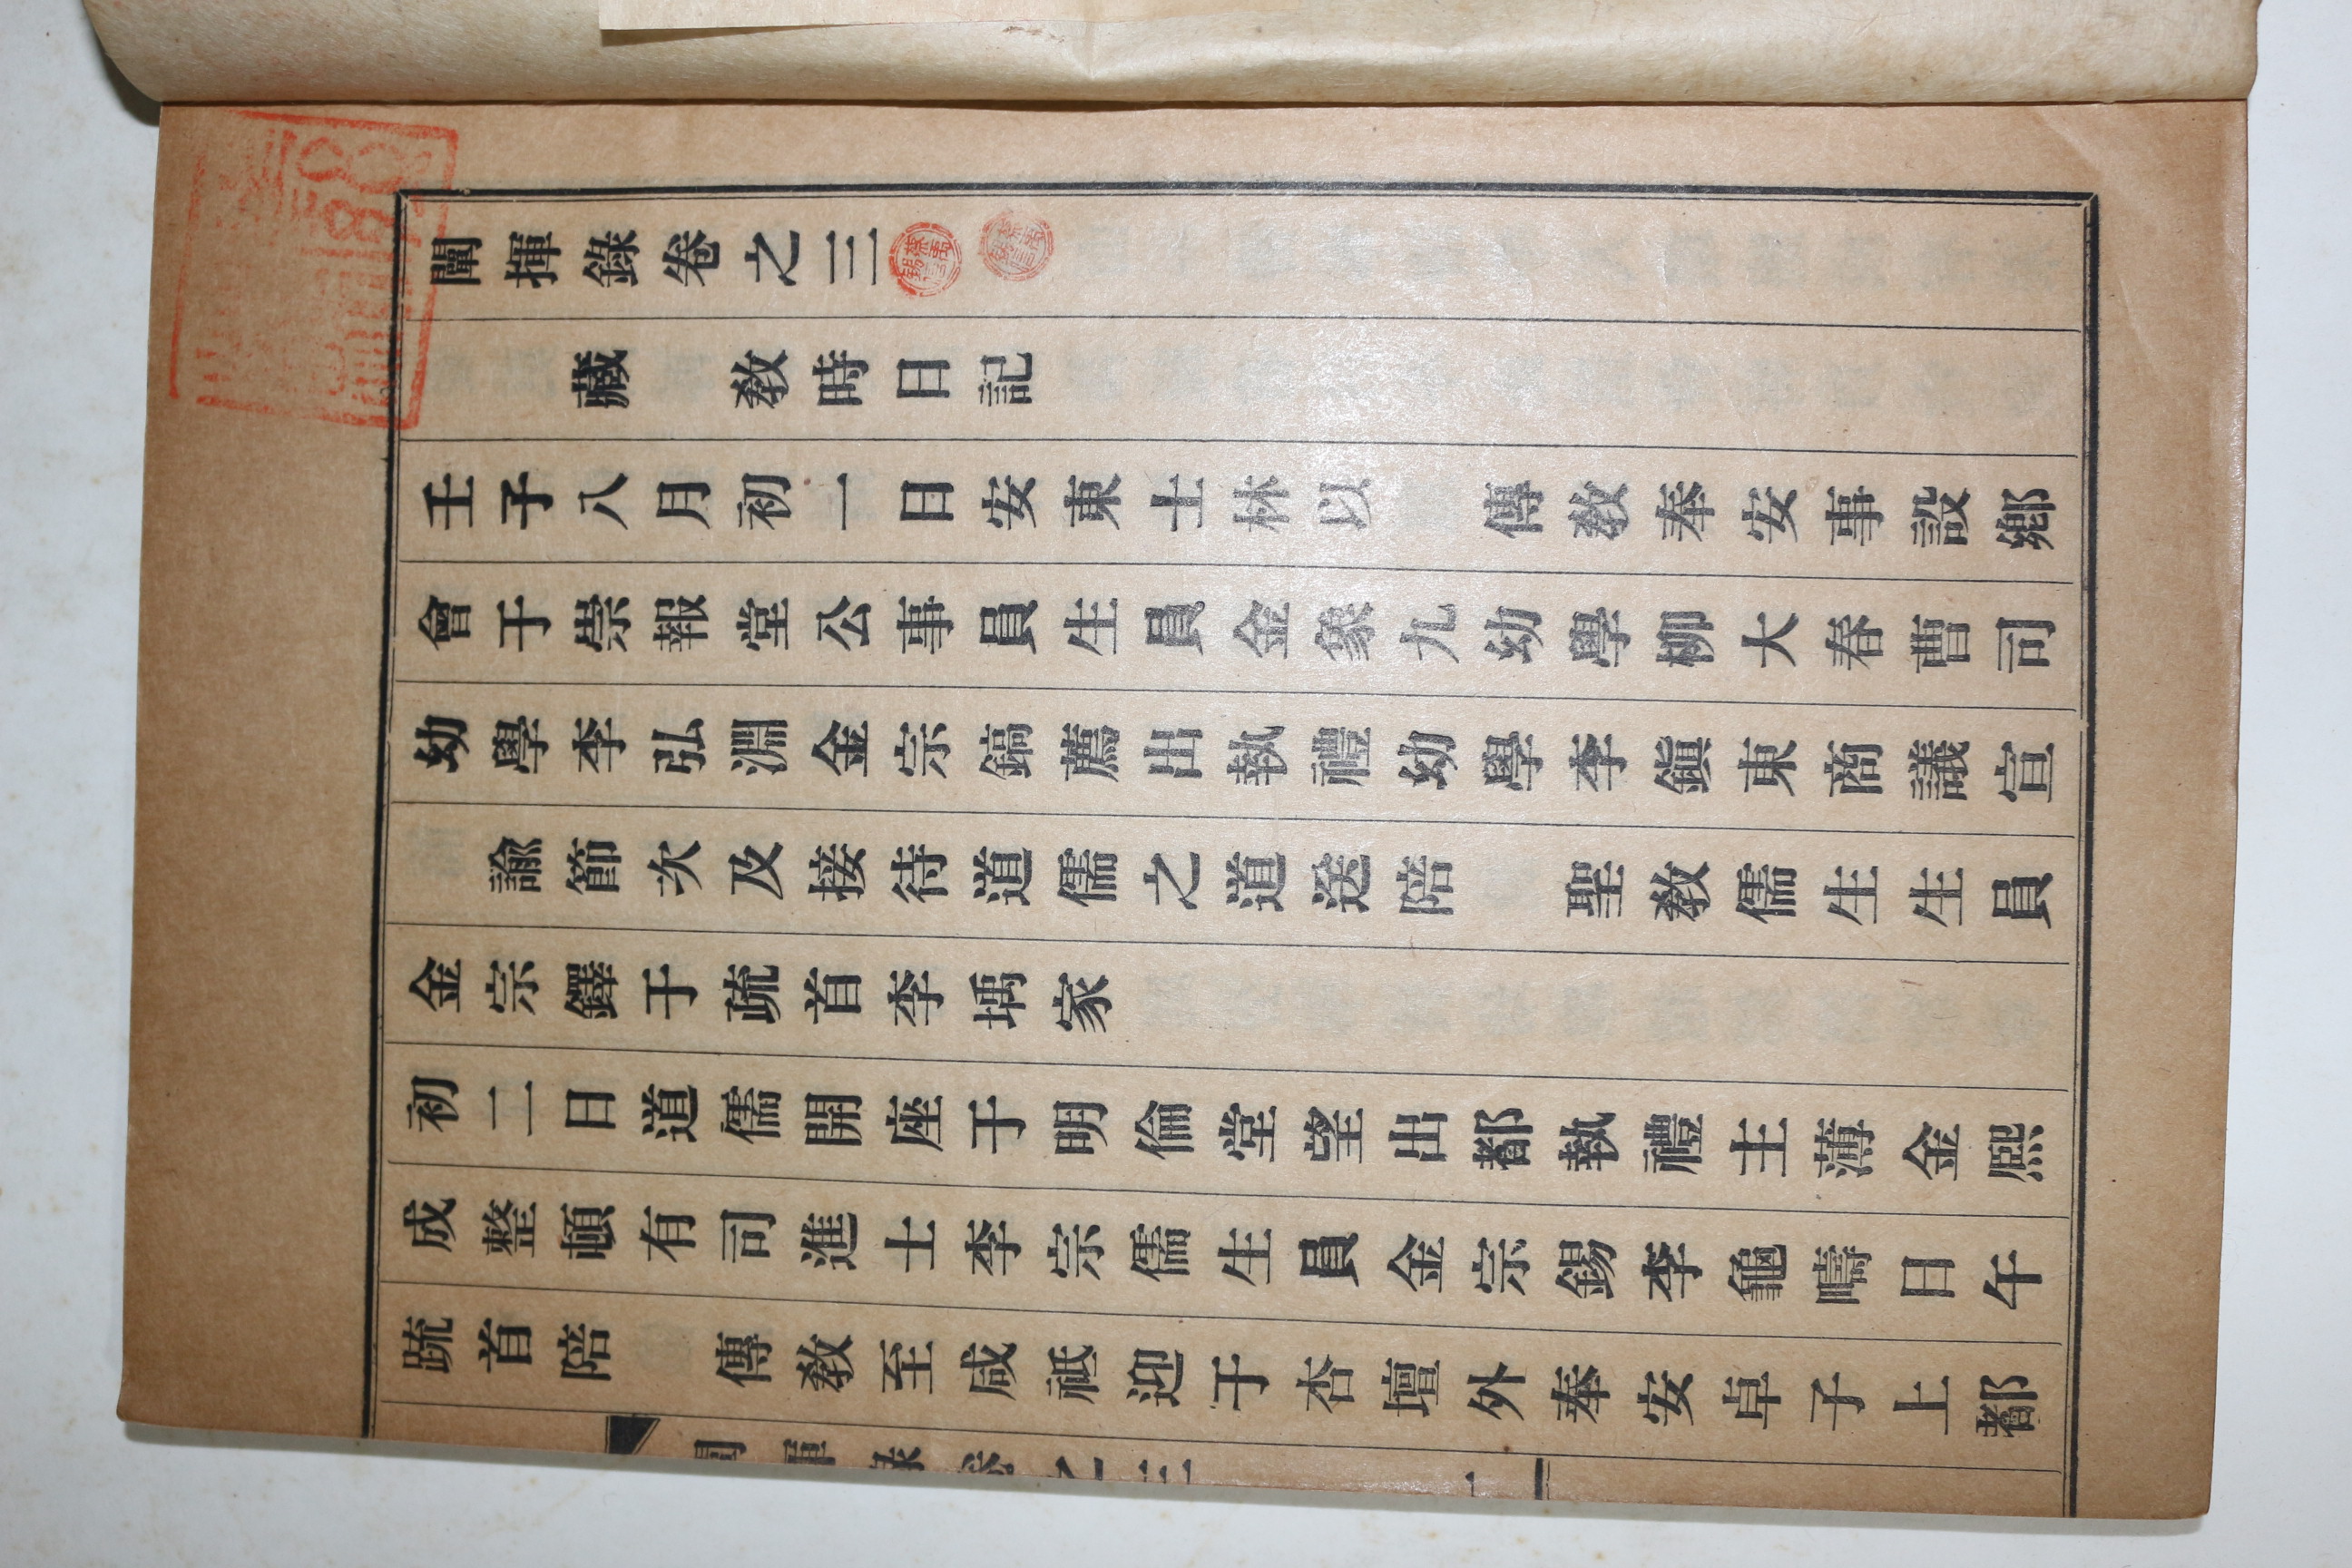 闡揮錄卷之三
藏 敎時日記
壬子八月初一日安東士林以 傳敎奉安事設鄕
會于崇報堂公事員生員金象九幼學柳大春曹司
幼學李弘淵金宗鎬薦出執禮幼學李鎭東商議宣
諭節次及接待道儒之道送陪 聖敎儒生生員
金宗鐸于疏首李㙖家
初二日道儒開座于明倫堂望出都執禮主薄金熙
成整頓有司進士李宗儒生員金宗錫李龜疇日午
疏首陪 傳敎至咸祗迎于杏壇外奉安卓子上都